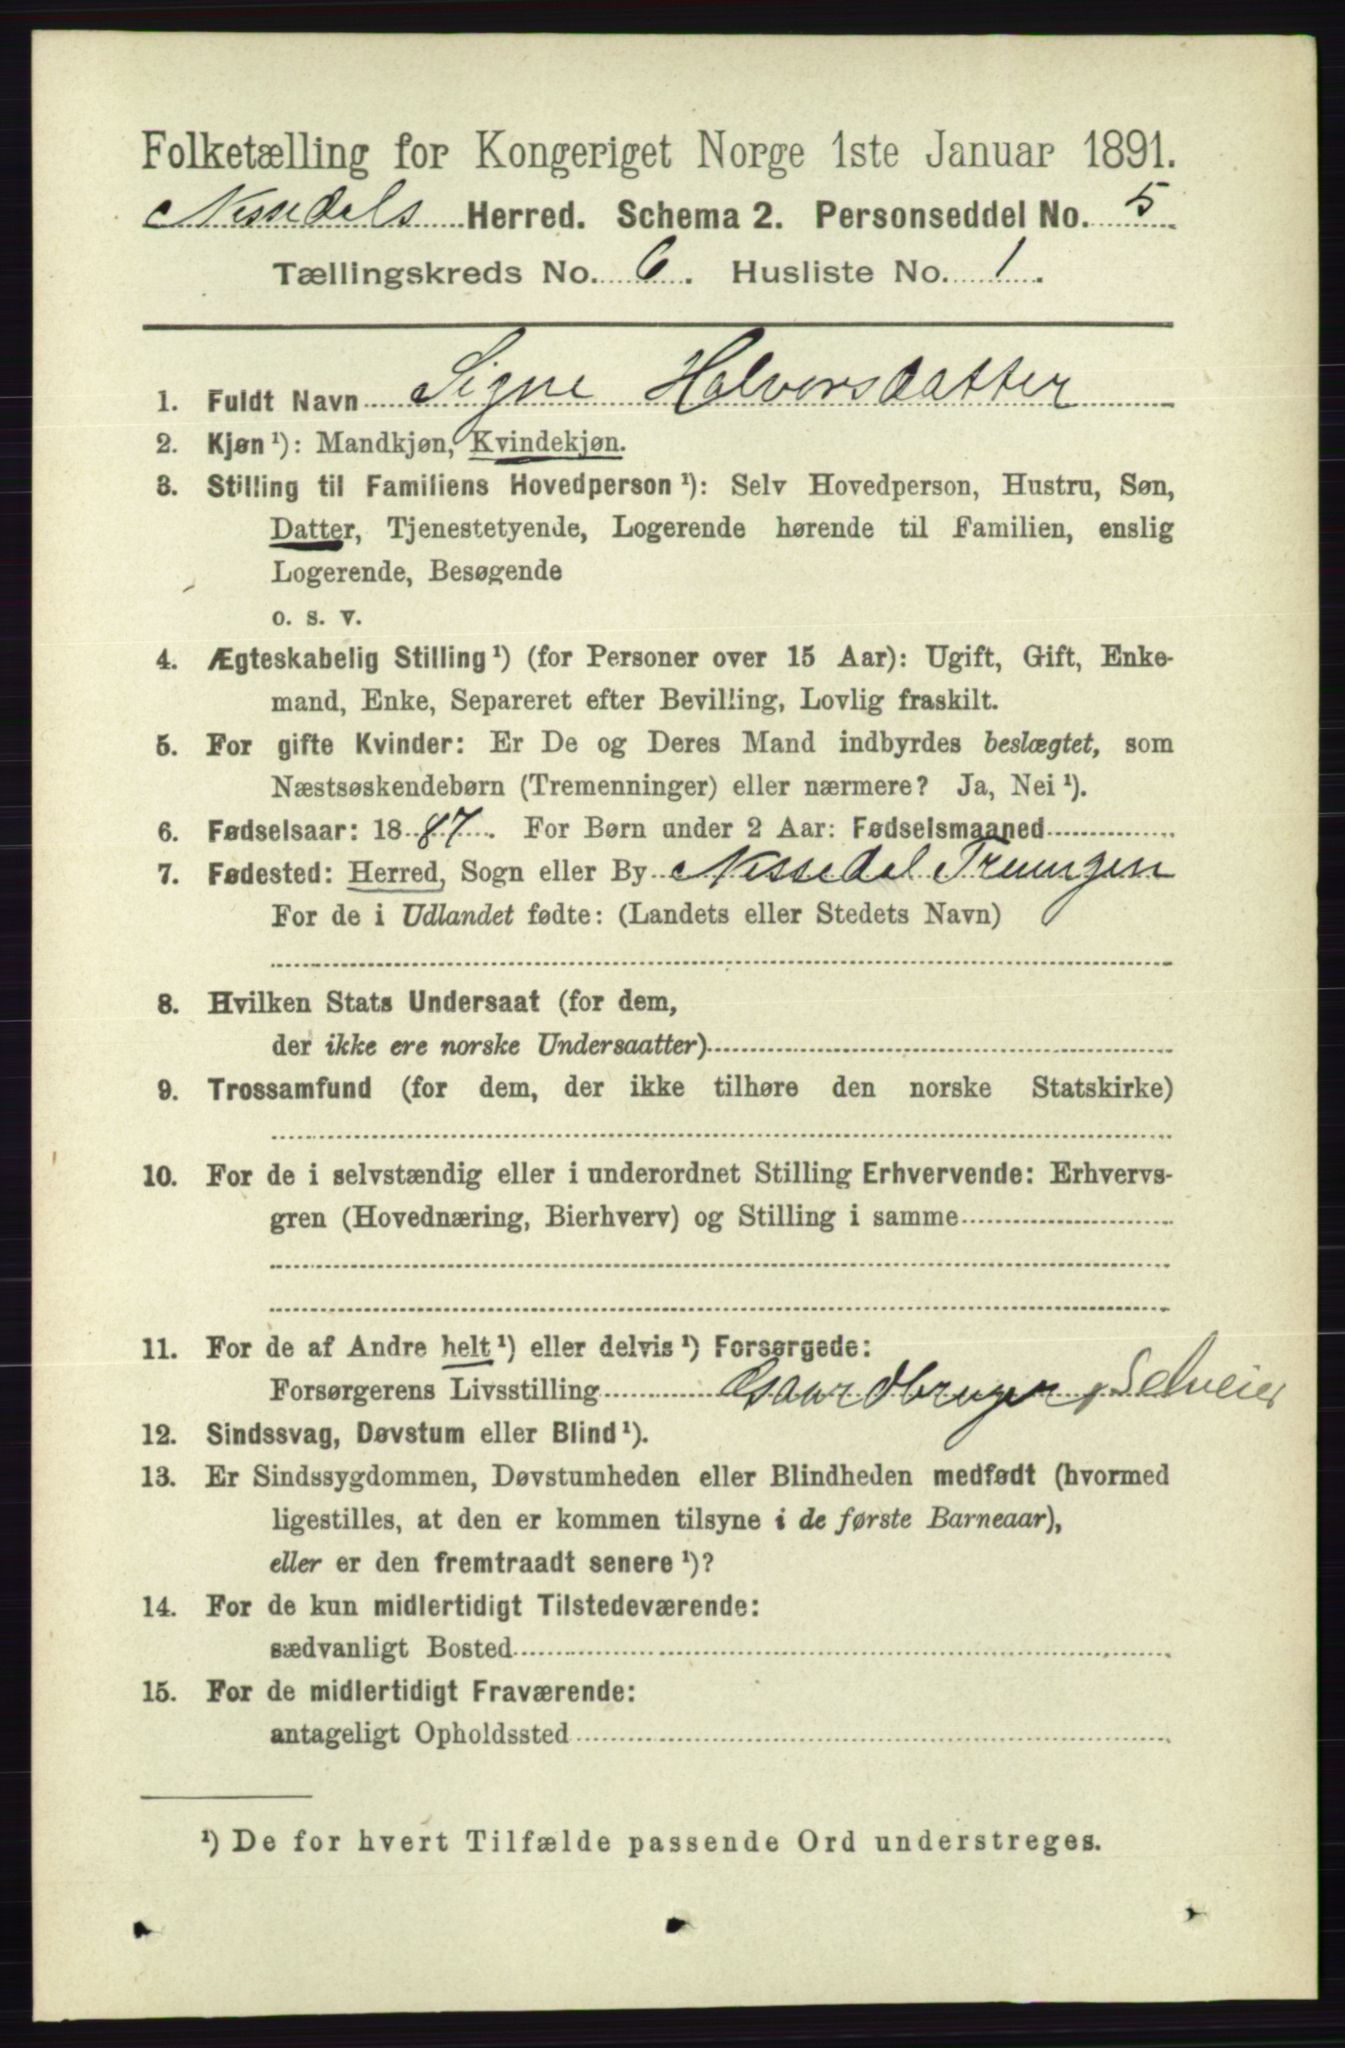 Folketælling for Kongeriget Norge 1ste Januar 1891.
Nissedals Herred. Schema 2. Personseddel No. 5
Tællingskreds No. 6. Husliste No. 1.
1. Fuldt Navn Signe Halvorsdatter
2. Kjøn¹): Mandkjøn, Kvindekjøn.
3. Stilling til Familiens Hovedperson¹): Selv Hovedperson, Hustru, Søn,
Datter, Tjenestetyende, Logerende hørende til Familien, enslig
Logerende, Besøgende
o. s. v.
4. Ægteskabelig Stilling¹) (for Personer over 15 Aar): Ugift, Gift, Enke-
mand, Enke, Separeret efter Bevilling, Lovlig fraskilt.
5. For gifte Kvinder: Er De og Deres Mand indbyrdes beslægtet, som
Næstsøskendebørn (Tremenninger) eller nærmere? Ja, Nei¹).
6. Fødselsaar: 1887. For Børn under 2 Aar: Fødselsmaaned
7. Fødested: Herred, Sogn eller By Nissedal Treungen
For de i Udlandet fødte: (Landets eller Stedets Navn)
8. Hvilken Stats Undersaat (for dem,
der ikke ere norske Undersaatter)
9. Trossamfund (for dem, der ikke tilhøre den norske Statskirke)
10. For de i selvstændig eller i underordnet Stilling Erhvervende: Erhvervs-
gren (Hovednæring, Bierhverv) og Stilling i samme
11. For de af Andre helt¹) eller delvis¹) Forsørgede:
Forsørgerens Livsstilling Gaardbruger, Selveier
12. Sindssvag, Døvstum eller Blind¹).
13. Er Sindssygdommen, Døvstumheden eller Blindheden medfødt (hvormed
ligestilles, at den er kommen tilsyne i de første Barneaar),
eller er den fremtraadt senere¹)?
14. For de kun midlertidigt Tilstedeværende:
sædvanligt Bosted
15. For de midlertidigt Fraværende:
antageligt Opholdssted
¹) De for hvert Tilfælde passende Ord understreges.